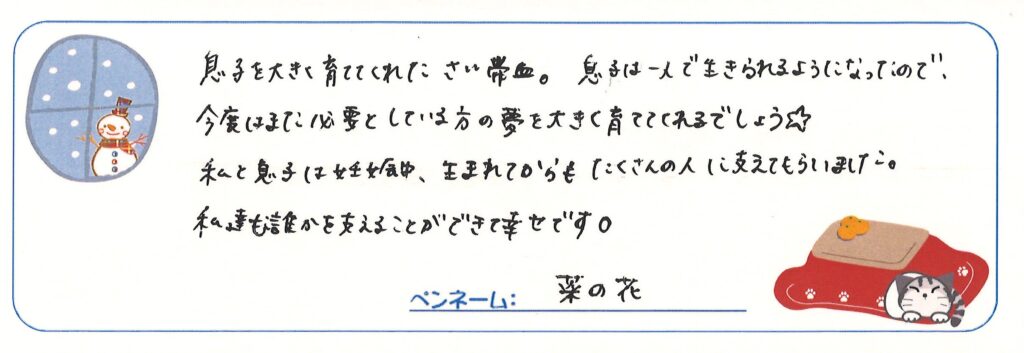 息子を大きく育ててくれたさい帯血。息子は一人で生きられるようになったので、
今度はまた必要としている方の夢を大きく育ててくれるでしょう☆
私と息子は妊娠中、生まれてからもたくさんの人に支えてもらいました。
私達も誰かを支えることができて幸せです。
ペンネーム： 菜の花